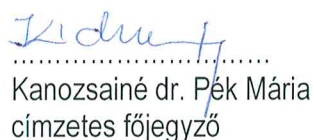 ..............................
Kanozsainé dr. Pék Mária
címzetes főjegyző